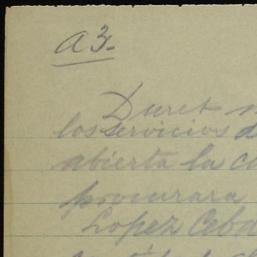 a3.
Duret
los servicios d
abierta la c
procurara
Lopez Ceba